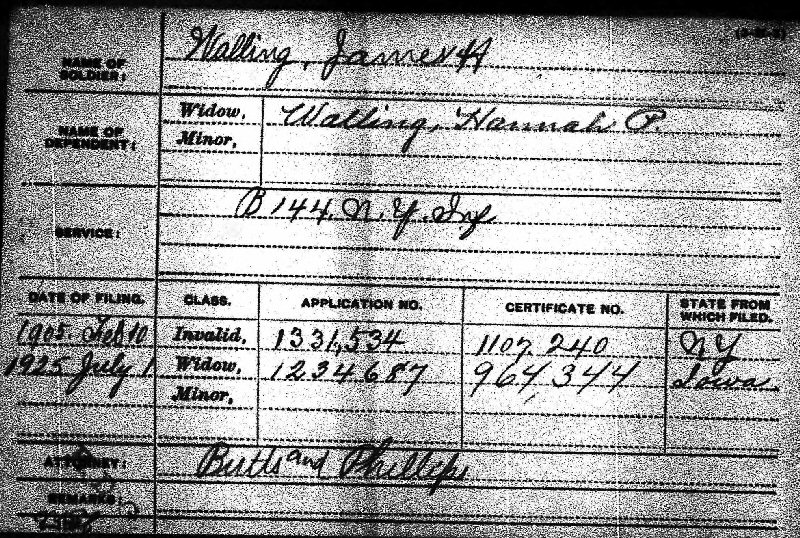 (3-M-2)
NAME OF SOLDIER: Walling, James H
NAME OF DEPENDENT: Widow, Walling, Hannah P.
Minor,
SERVICE: B 144. N. Y. Inf
DATE OF FILING. CLASS. APPLICATION NO. CERTIFICATE NO. STATE FROM WHICH FILED.
1905. Feb 10 Invalid, 1331,534 1107 240 N Y
1925 July 1 Widow, 1234687 964,344 Iowa
Minor,
ATTORNEY: Butts and Phillips
REMARKS: